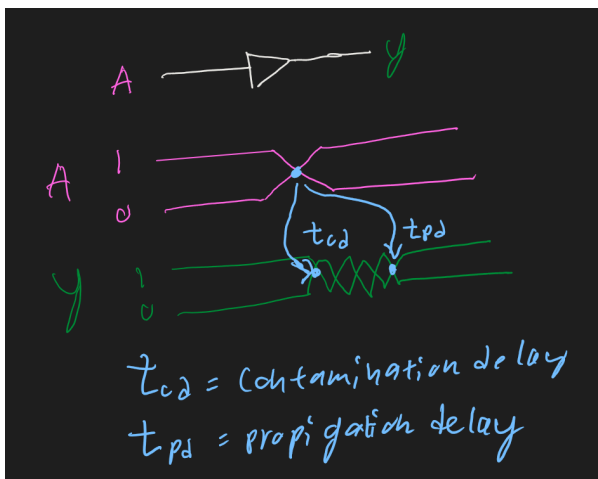 A y
A 1
0
tcd tpd
y 1
0
tcd = contamination delay
tpd = propigation delay